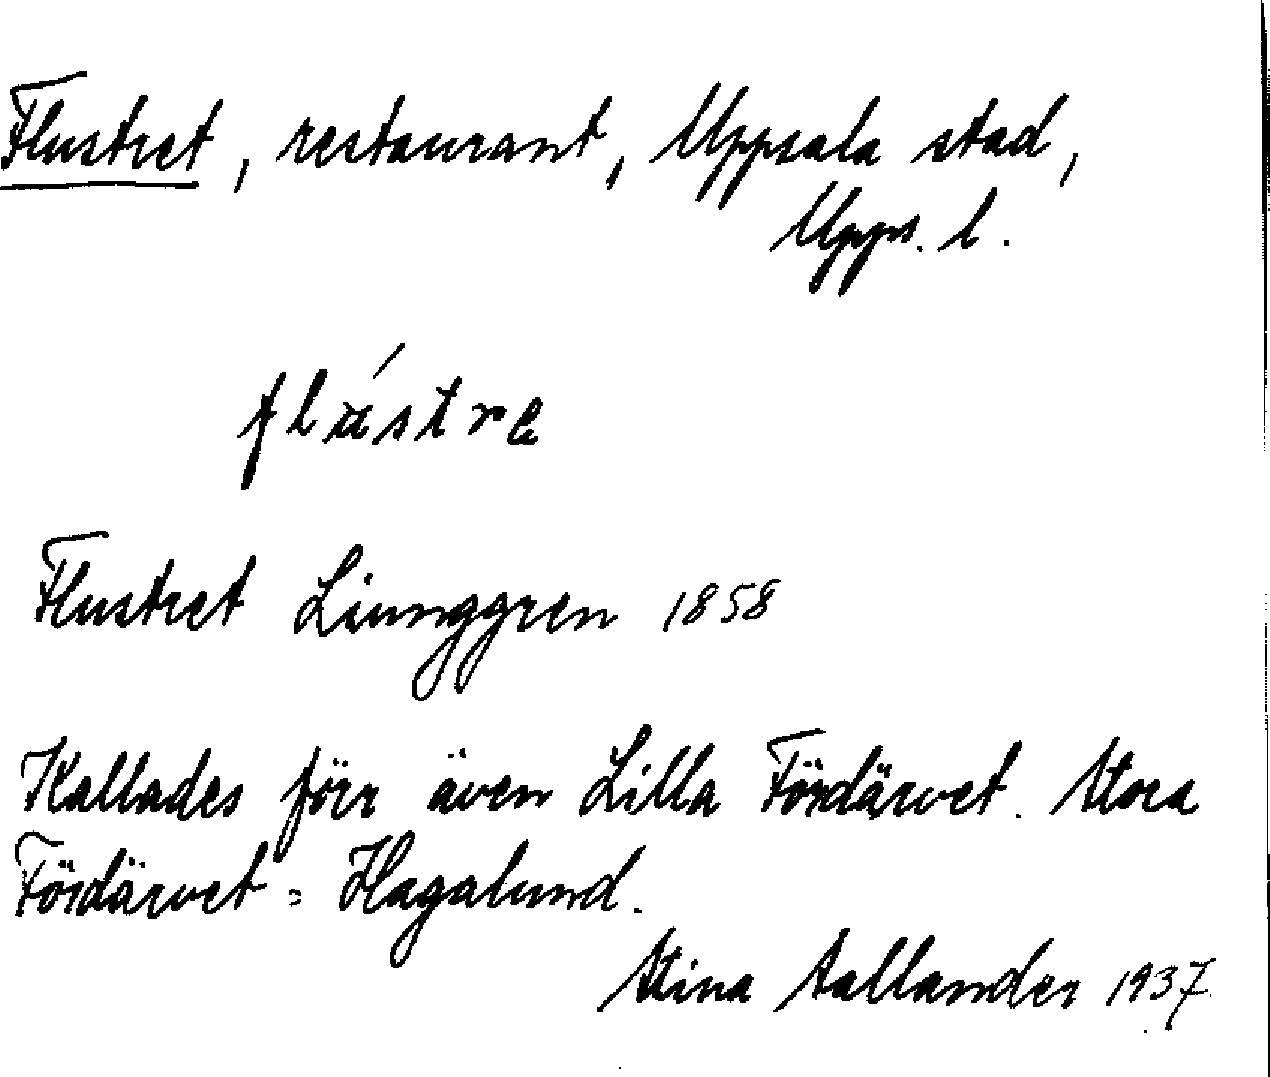 Flustret, restaurant, Uppsala stad,
Upps. l.
flústre
Flustret Liunggren 1858
Kallades förr även Lilla Fördärvet. Stora
Fördärvet = Hagalund.
Stina 1937